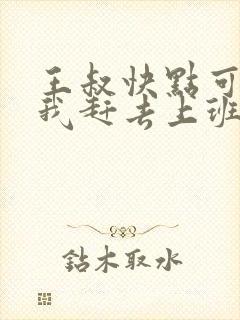 王叔快點可
我赶去上班
鉆木取水